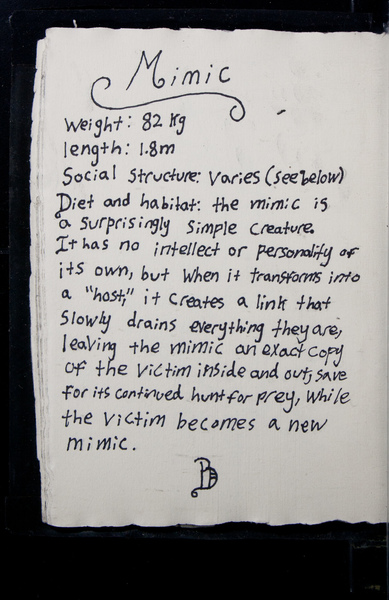 Mimic
Weight: 82 kg
length: 1.8m
Social Structure: Varies (see below)
Diet and habitat: the mimic is
a surprisingly simple creature.
It has no intellect or personality of
its own, but when it transforms into
a "host," it creates a link that
slowly drains everything they are,
leaving the mimic an exact copy
of the victim inside and out, save
for its continued hunt for prey, while
the victim becomes a new
mimic.